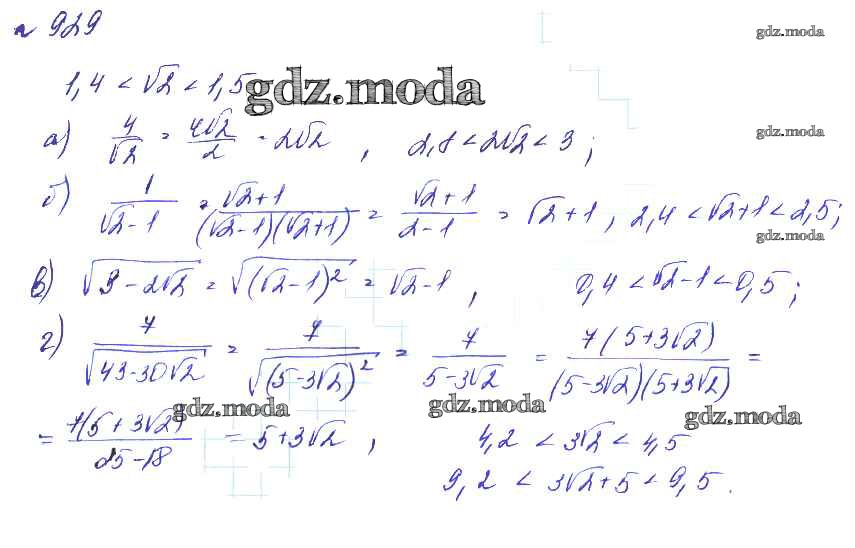 № 929
gdz.moda
1,4 < √2 < 1,5
gdz.moda
а) 4/√2 = 4√2/2 = 2√2 , 2,8 < 2√2 < 3 ;
gdz.moda
б) 1/(√2-1) = (√2+1)/((√2-1)(√2+1)) = (√2+1)/(2-1) = √2+1 , 2,4 < √2+1 < 2,5;
gdz.moda
в) √(3-2√2) = √((√2-1)²) = √2-1 , 0,4 < √2-1 < 0,5 ;
г) 7/√(43-30√2) = 7/√((5-3√2)²) = 7/(5-3√2) = 7(5+3√2)/((5-3√2)(5+3√2)) =
gdz.moda gdz.moda gdz.moda
= 7(5+3√2)/(25-18) = 5+3√2 , 4,2 < 3√2 < 4,5
9,2 < 3√2+5 < 9,5.